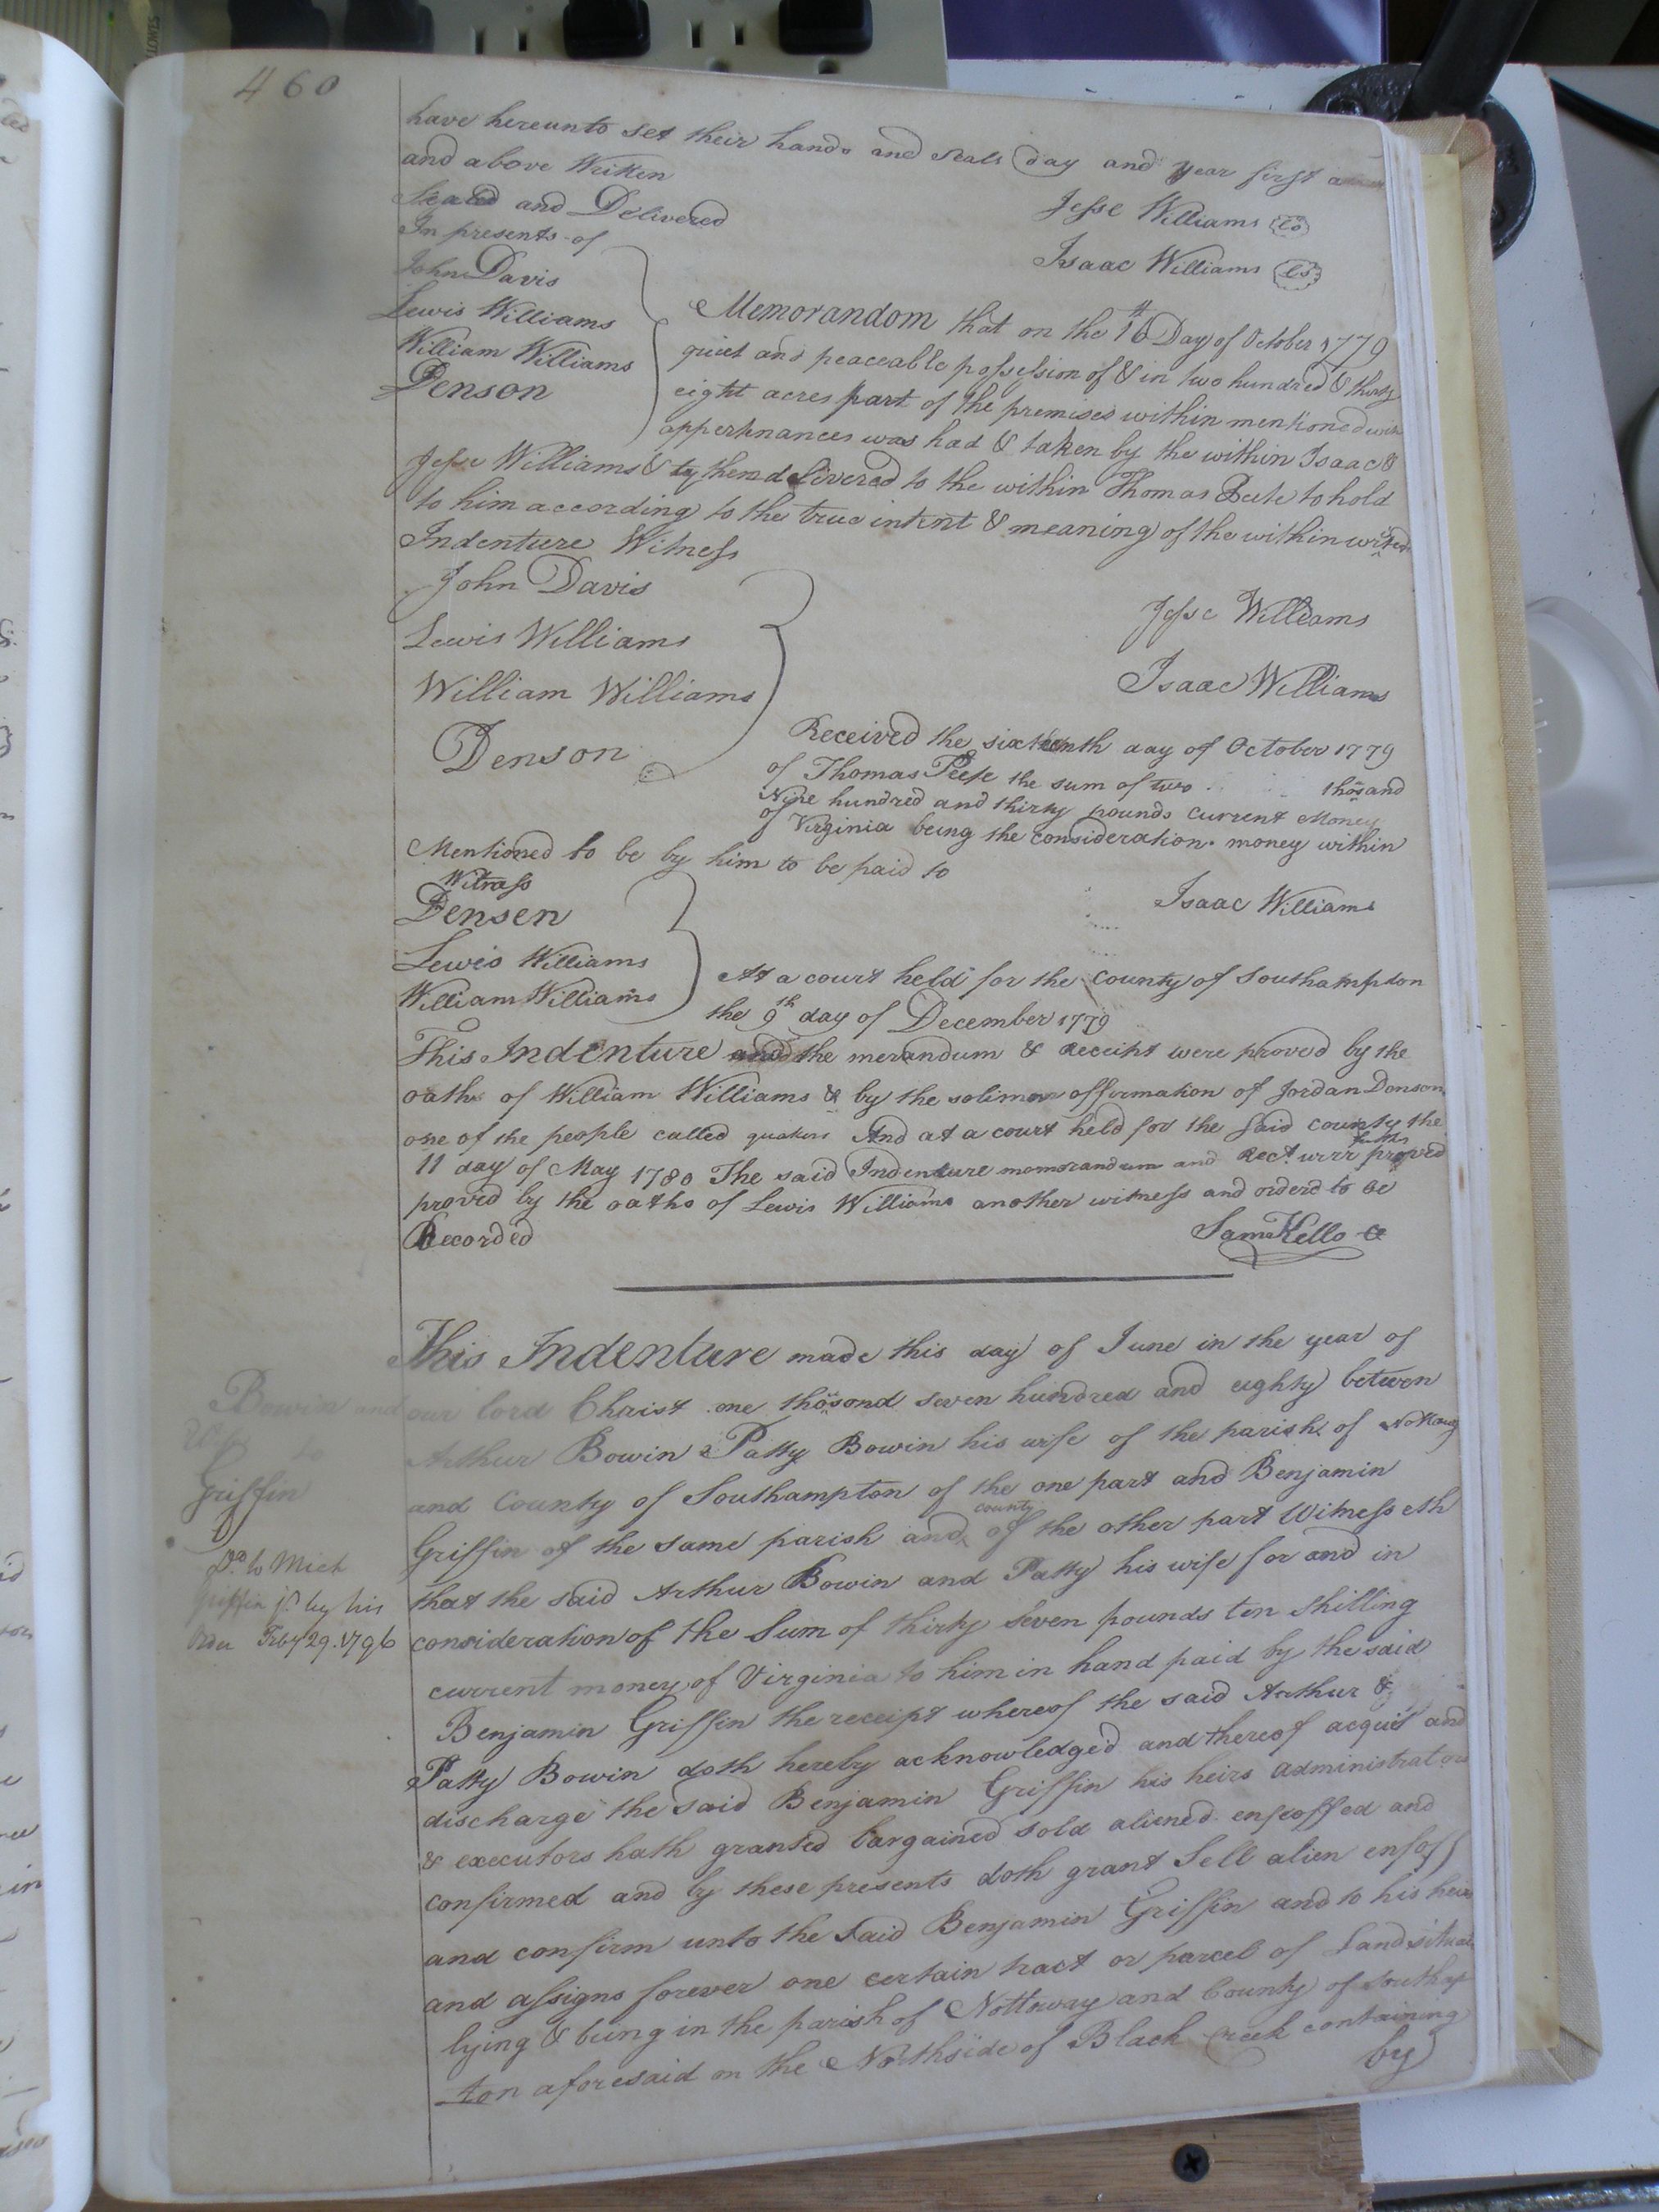 460
have hereunto set their hands and seals day and year first
and above Writen
Sealed and Delivered
In presents of
Jesse Williams (LS)
Isaac Williams (LS)
John Davis
Lewis Williams
William Williams
Denson
Memorandom that on the 16th Day of October 1779
quiet and peaceable possession of & in two hundred & thirty
eight acres part of the premises within mentioned with
appertnances was had & taken by the within Isaac &
Jesse Williams & by them delivered to the within Thomas to hold
to him according to the true intent & meaning of the within
Indenture Witness
John Davis
Lewis Williams
William Williams
Denson
Jesse Williams
Isaac Williams
Received the sixteenth day of October 1779
of Thomas the sum of two thosand
Nine hundred and thirty pounds current Money
of Virginia being the consideration money within
Mentioned to be by him to be paid to
Witness
Densen
Lewis Williams
William Williams
Isaac Williams
At a court held for the county of Southampton
the 9th day of December 1779
This Indenture and the merandum & Receipt were proved by the
oaths of William Williams & by the solimn affirmation of Jordan Denson
one of the people called quakers And at a court held for the said county the
11 day of May 1780 The said Indenture momorandum and Rect. were further proved
proved by the oaths of Lewis Williams another witness and orderd to be
Recorded
Sam Kello
This Indenture made this day of June in the year of
our lord Christ one thosond seven hundred and eighty between
Arthur Bowin & Patty Bowin his wife of the parish of Nottoway
and County of Southampton of the one part and Benjamin
Griffin of the same parish and county of the other part Witnesseth
that the said Arthur Bowin and Patty his wife for and in
consideration of the Sum of thirty seven pounds ten shilling
current money of Virginia to him in hand paid by the said
Benjamin Griffin the receipt whereof the said Arthur &
Patty Bowin doth hereby acknowledged and thereof acquit and
discharge the said Benjamin Griffin his heirs administrators
& executors hath granted bargained sold aliened enfeoffed and
confirmed and by these presents doth grant Sell alien enfoff
and confirm unto the said Benjamin Griffin and to his heirs
and assigns forever one certain tract or parcel of Land situate
lying & being in the parish of Nottoway and County of Southap
ton aforesaid on the Northside of Black Creek containing
by
Bowin and
to
Griffin
Dd. to Mich
Griffin jr. by his
Order Feby 29. 1796